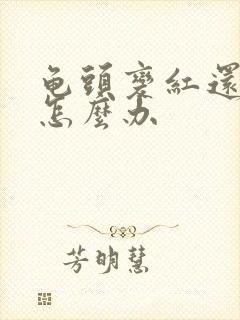 龟頭變紅還
怎麼办
芳明慧